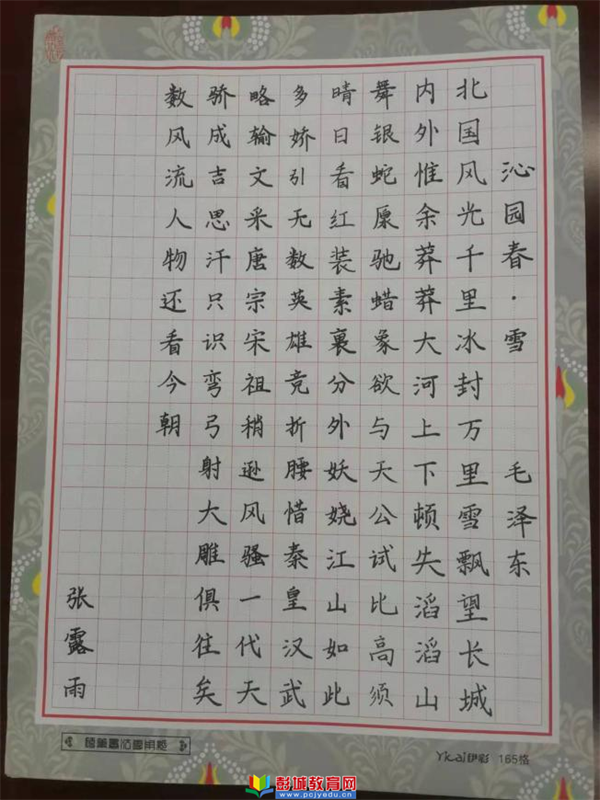 沁园春·雪 毛泽东
北国风光千里冰封万里雪飘望长城
内外惟余莽莽大河上下顿失滔滔山
舞银蛇原驰蜡象欲与天公试比高须
晴日看红装素裹分外妖娆江山如此
多娇引无数英雄竞折腰惜秦皇汉武
略输文采唐宗宋祖稍逊风骚一代天
骄成吉思汗只识弯弓射大雕俱往矣
数风流人物还看今朝
张露雨
伊彩 165格
彭城教育网
www.pcjyedu.cn